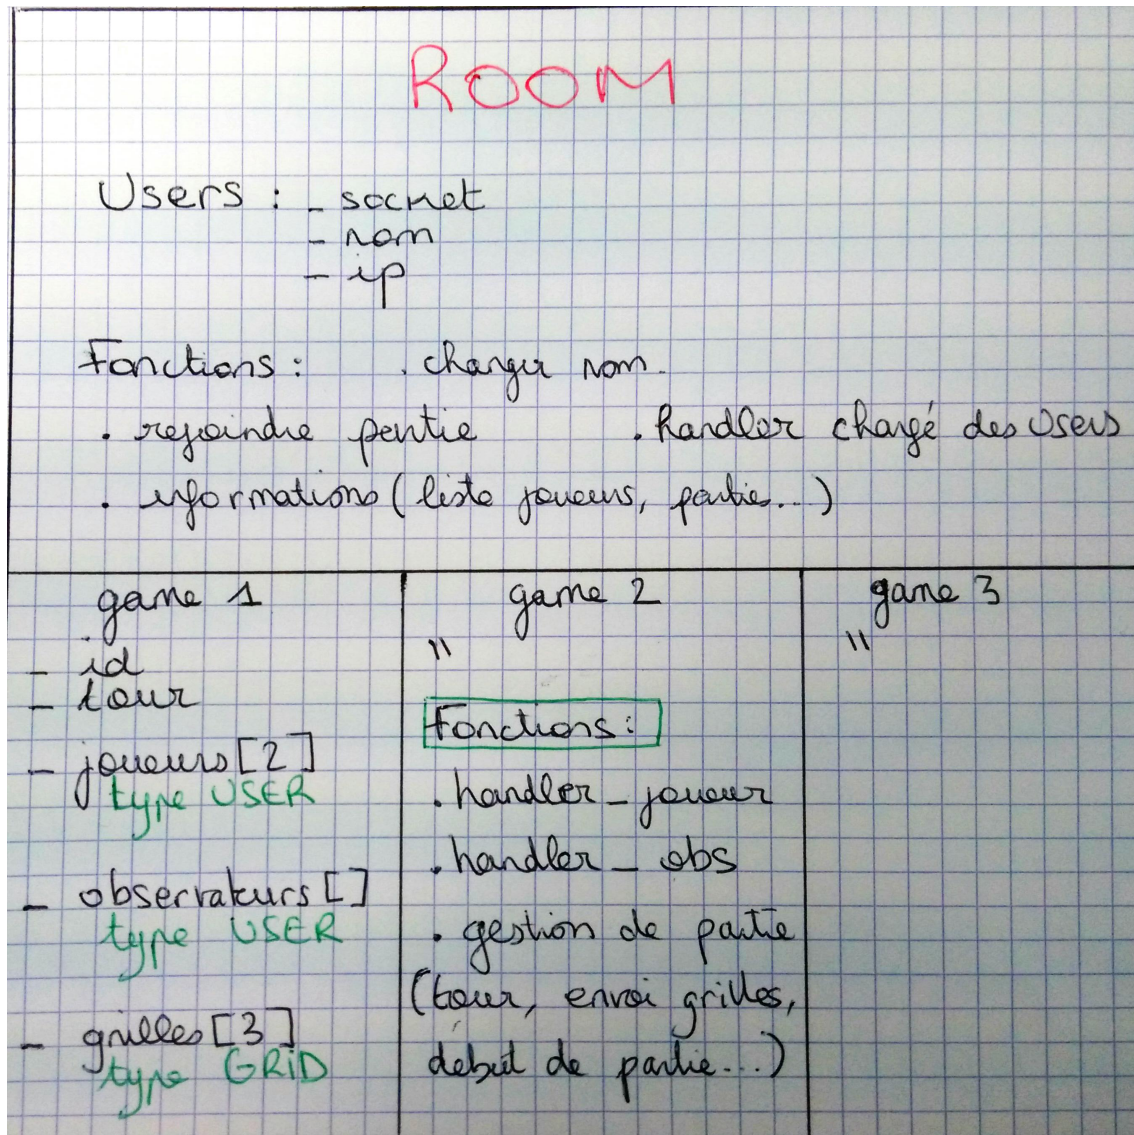 ROOM
Users : - socket
- nom
- ip
Fonctions : . changer nom.
. rejoindre partie . handler chargé des Users
. informations (liste joueurs, parties...)
game 1
- id
- tour
- joueurs [2]
type USER
- observateurs []
type USER
- grilles [3]
type GRID
game 2
"
Fonctions :
. handler_joueur
. handler_obs
. gestion de partie
(tour, envoi grilles,
début de partie...)
game 3
"